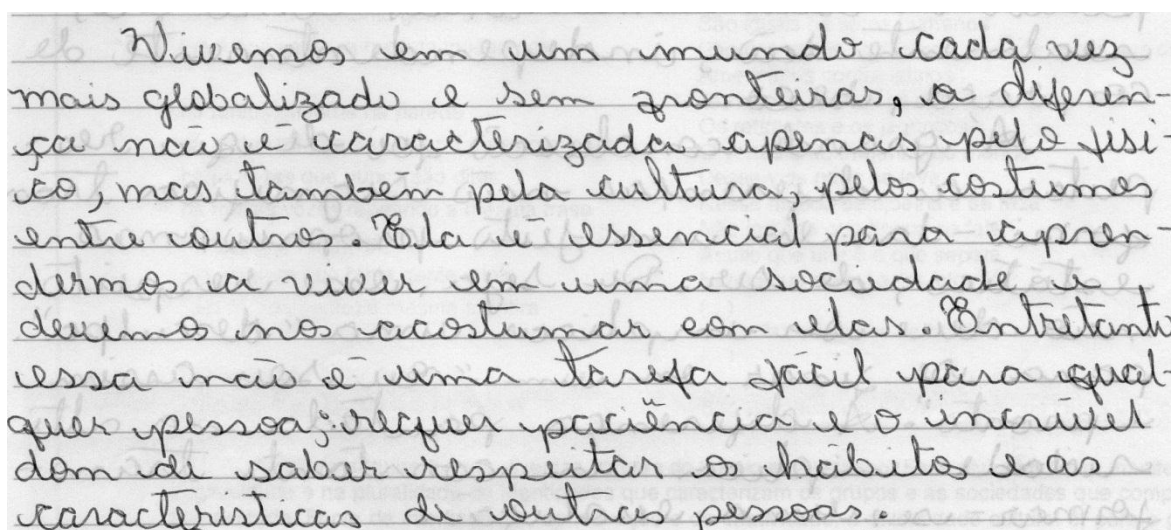 Vivemos em um mundo cada vez
mais globalizado e sem fronteiras, a diferen-
ça não é caracterizada apenas pelo físi
co, mas também pela cultura, pelos costumes
entre outros. Ela é essencial para apren-
dermos a viver em uma sociedade e
devemos nos acostumar com elas. Entretanto
essa não é uma tarefa fácil para qual-
quer pessoa; requer paciência e o incrível
dom de saber respeitar os hábitos e as
características de outras pessoas.